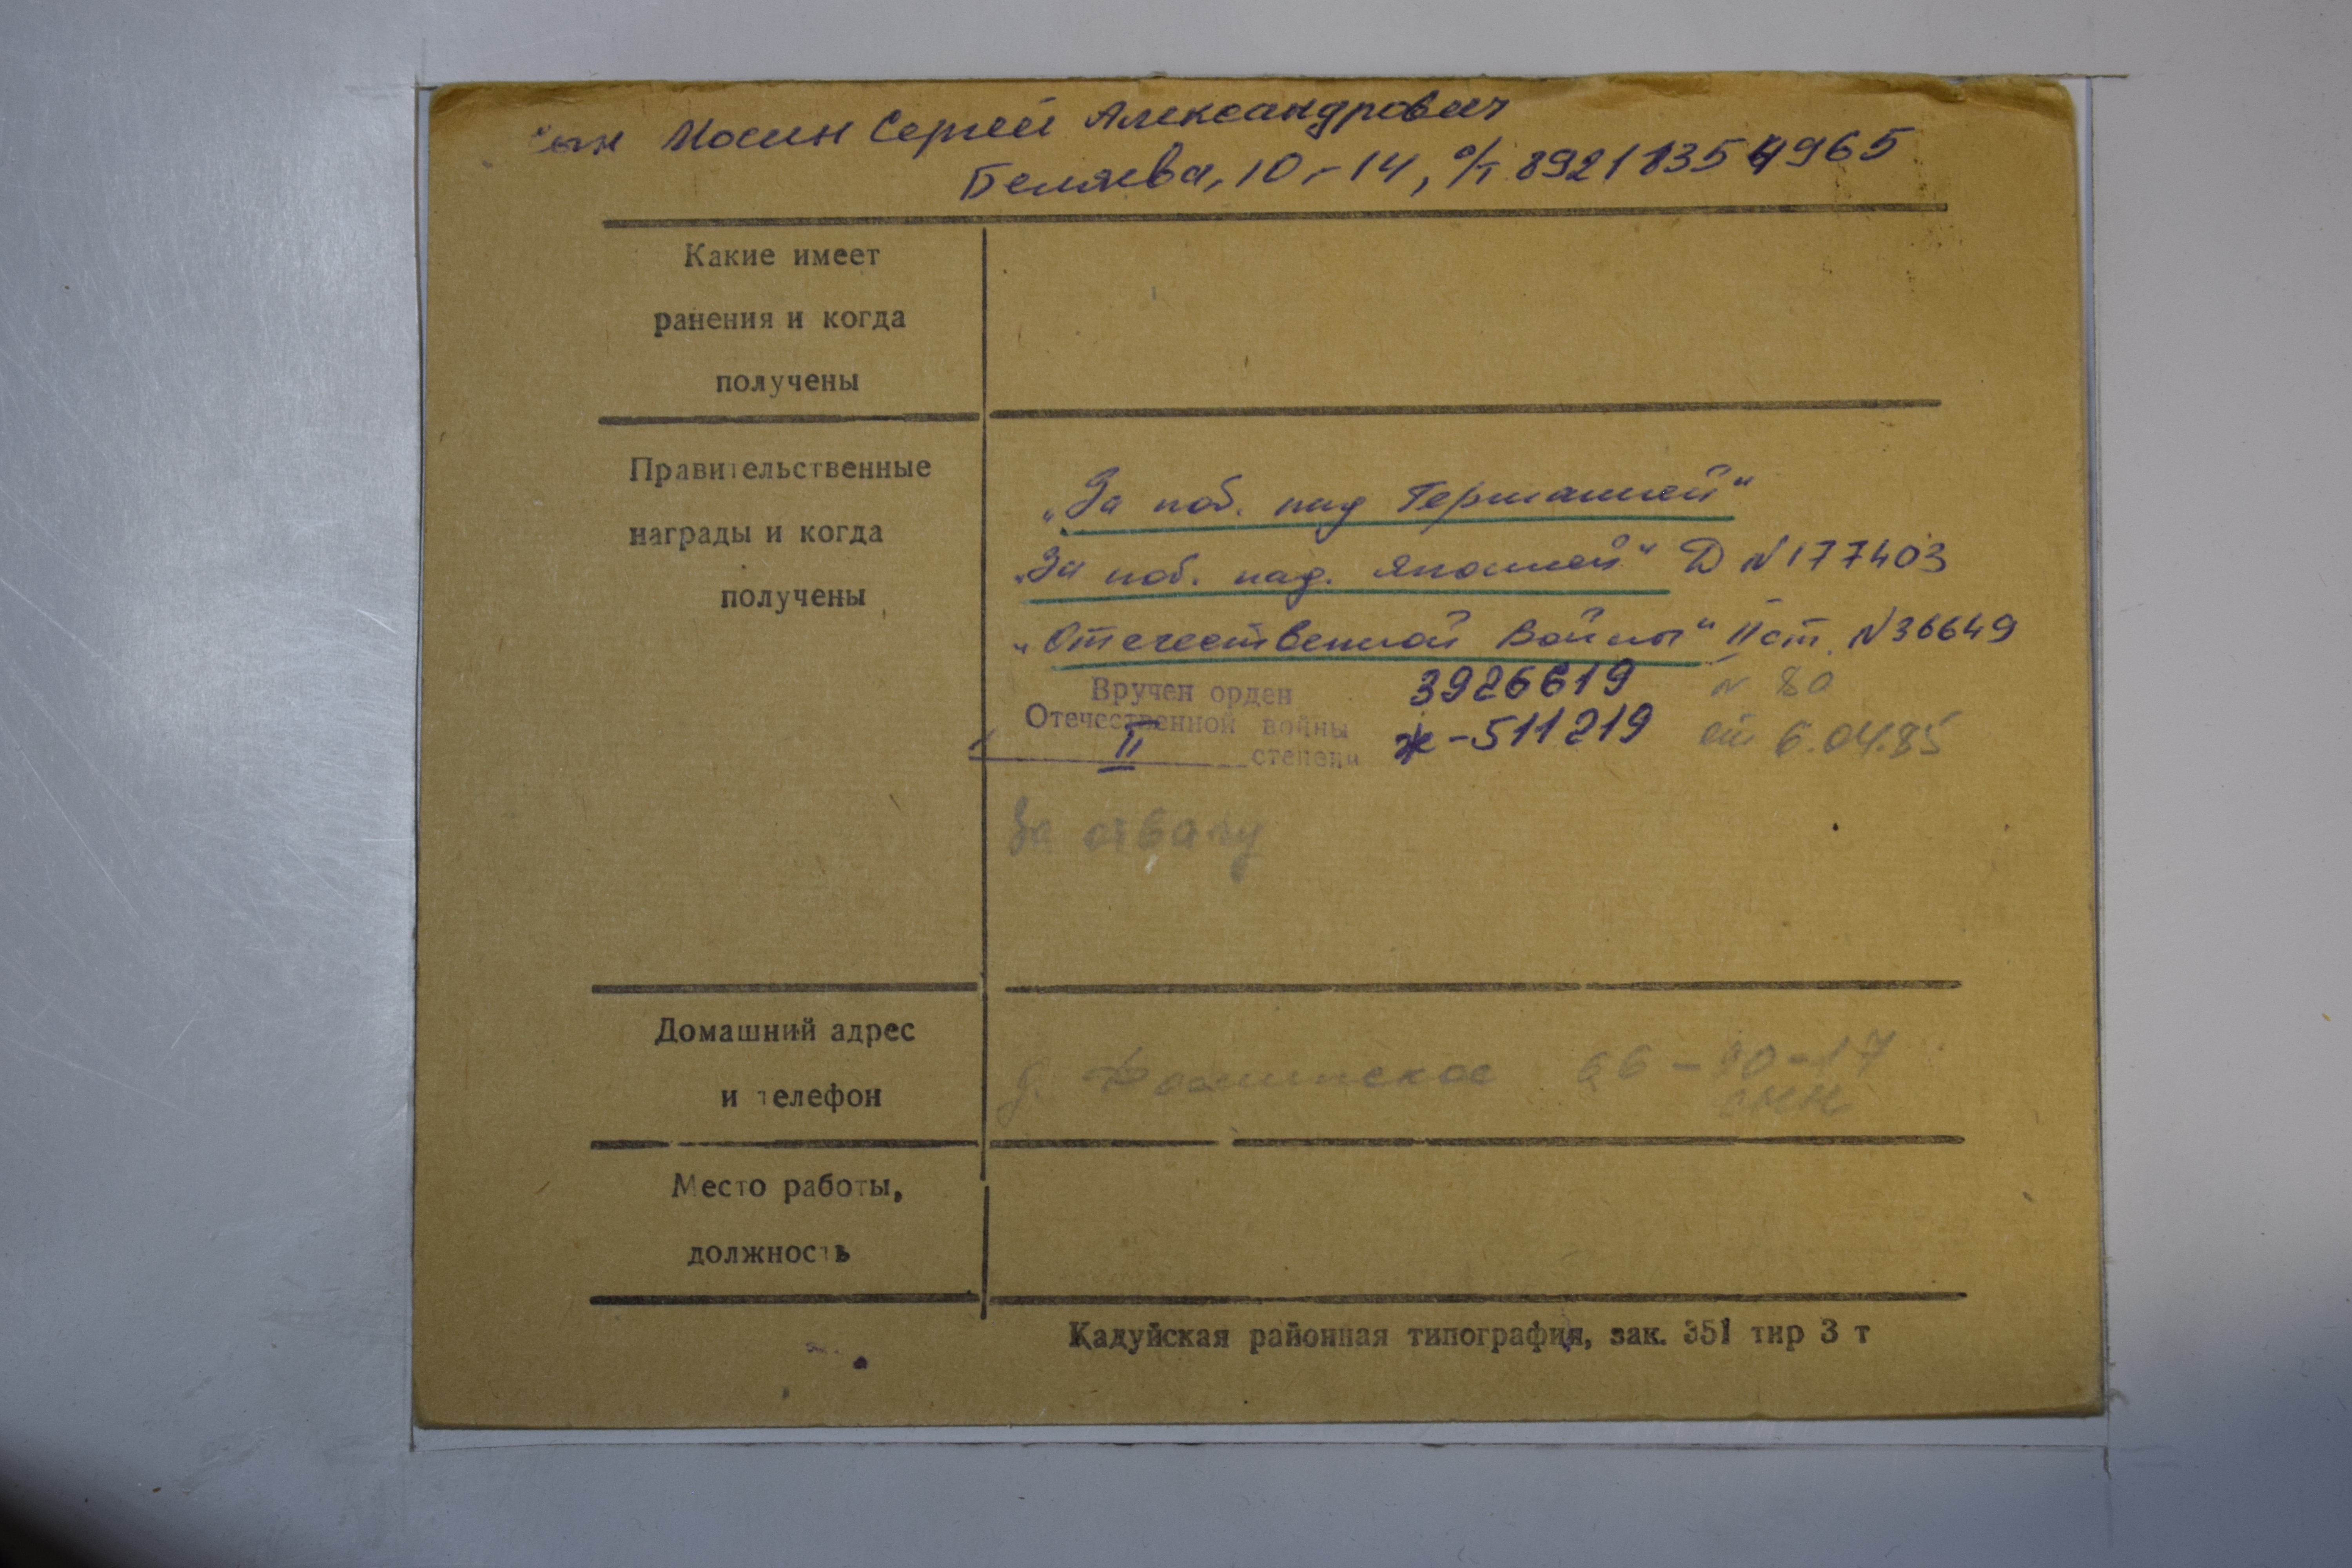 сын Мосин Сергей Александрович
Беляева, 10-14, с/т 89211354965
Какие имеет
ранения и когда
получены
Правительственные
награды и когда
получены
„За поб. над Германией"
„За поб. над. Японией" Д N177403
„Отечественной Войны" II ст. N36649
Вручен орден 3926619 N 80
Отечественной войны Ж-511219 от 6.04.85
II степени
За отвагу
Домашний адрес
и телефон
д. 66-90-17
сын
Место работы,
должность
Кадуйская районная типография, зак. 351 тир 3 т